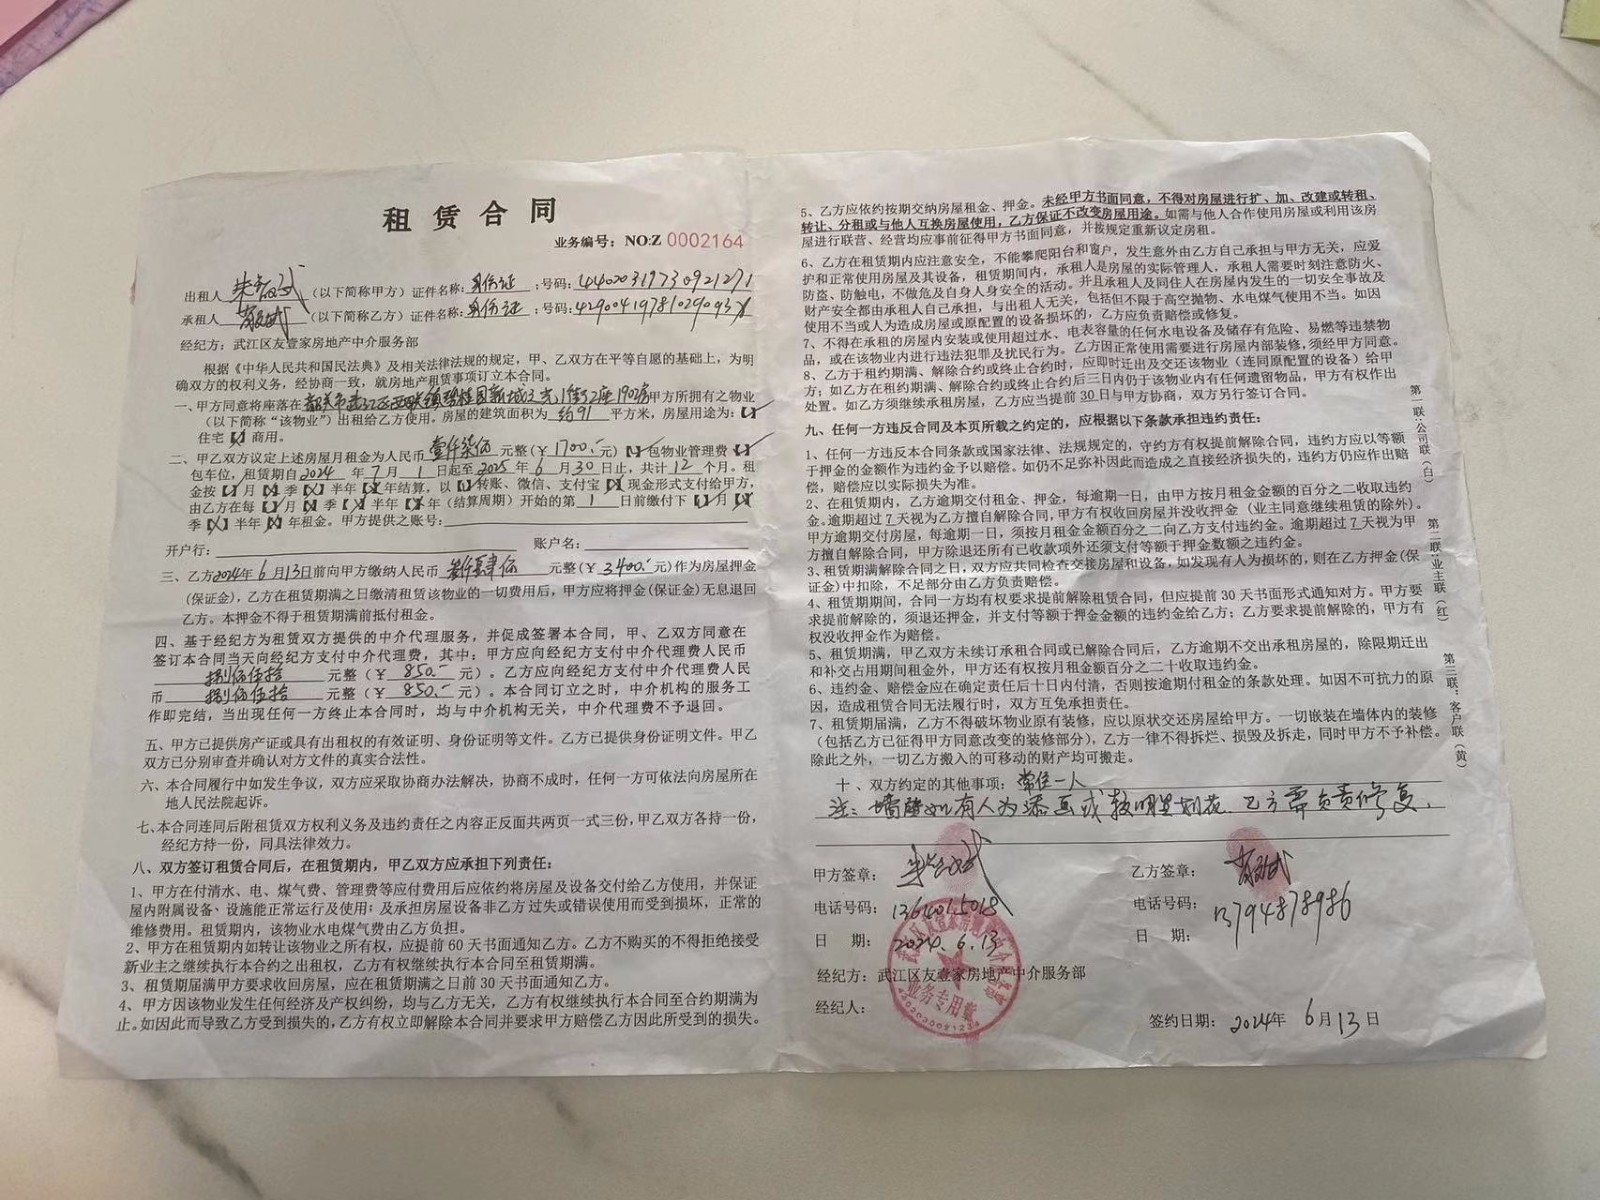 租 赁 合 同
业务编号：NO:Z 0002164
出租人 （以下简称甲方）证件名称：身份证 ；号码：44020319730921271
承租人 （以下简称乙方）证件名称：身份证 ；号码：42900419781029093X
经纪方：武江区友壹家房地产中介服务部
根据《中华人民共和国民法典》及相关法律法规的规定，甲、乙双方在平等自愿的基础上，为明
确双方的权利义务，经协商一致，就房地产租赁事项订立本合同。
一、甲方同意将座落在韶关市武江区西联镇碧桂园新城之光1街2座1902房甲方所拥有之物业
（以下简称“该物业”）出租给乙方使用。房屋的建筑面积为 约91 平方米，房屋用途为：【✓】
住宅【✗】商用。
二、甲乙双方议定上述房屋月租金为人民币 壹仟柒佰 元整（￥ 1700.- 元）【✓】包物业管理费【✓】
包车位，租赁期自2024 年 7 月 1 日起至2025 年 6 月 30 日止，共计 12 个月。租
金按【✓】月【✗】季【✗】半年【✗】年结算，以【✓】转账、微信、支付宝【✗】现金形式支付给甲方，
由乙方在每【✓】月【✗】季【✗】半年【✗】年（结算周期）开始的第 1 日前缴付下【✓】月【✗】
季【✗】半年【✗】年租金。甲方提供之账号：
开户行： 账户名：
三、乙方2024年 6 月13日前向甲方缴纳人民币 叁仟肆佰 元整（￥ 3400.- 元）作为房屋押金
（保证金），乙方在租赁期满之日缴清租赁该物业的一切费用后，甲方应将押金(保证金)无息退回
乙方。本押金不得于租赁期满前抵付租金。
四、基于经纪方为租赁双方提供的中介代理服务，并促成签署本合同，甲、乙双方同意在
签订本合同当天向经纪方支付中介代理费，其中：甲方应向经纪方支付中介代理费人民币
捌佰伍拾 元整（￥ 850.- 元）。乙方应向经纪方支付中介代理费人民
币 捌佰伍拾 元整（￥ 850.- 元）。本合同订立之时，中介机构的服务工
作即完结，当出现任何一方终止本合同时，均与中介机构无关，中介代理费不予退回。
五、甲方已提供房产证或具有出租权的有效证明、身份证明等文件。乙方已提供身份证明文件。甲乙
双方已分别审查并确认对方文件的真实合法性。
六、本合同履行中如发生争议，双方应采取协商办法解决，协商不成时，任何一方可依法向房屋所在
地人民法院起诉。
七、本合同连同后附租赁双方权利义务及违约责任之内容正反面共两页一式三份，甲乙双方各持一份，
经纪方持一份，同具法律效力。
八、双方签订租赁合同后，在租赁期内，甲乙双方应承担下列责任：
1、甲方在付清水、电、煤气费、管理费等应付费用后应依约将房屋及设备交付给乙方使用，并保证
屋内附属设备、设施能正常运行及使用；及承担房屋设备非乙方过失或错误使用而受到损坏，正常的
维修费用。租赁期内，该物业水电煤气费由乙方负担。
2、甲方在租赁期内如转让该物业之所有权，应提前60天书面通知乙方。乙方不购买的不得拒绝接受
新业主之继续执行本合约之出租权，乙方有权继续执行本合同至租赁期满。
3、租赁期届满甲方要求收回房屋，应在租赁期满之日前30天书面通知乙方。
4、甲方因该物业发生任何经济及产权纠纷，均与乙方无关，乙方有权继续执行本合同至合约期满为
止。如因此而导致乙方受到损失的，乙方有权立即解除本合同并要求甲方赔偿乙方因此所受到的损失。
5、乙方应依约按期交纳房屋租金、押金。未经甲方书面同意，不得对房屋进行扩、加、改建或转租、
转让、分租或与他人互换房屋使用，乙方保证不改变房屋用途。如需与他人合作使用房屋或利用该房
屋进行联营、经营均应事前征得甲方书面同意，并按规定重新议定房租。
6、乙方在租赁期内应注意安全，不能攀爬阳台和窗户，发生意外由乙方自己承担与甲方无关，应爱
护和正常使用房屋及其设备，租赁期间内，承租人是房屋的实际管理人，承租人需要时刻注意防火、
防盗、防触电，不做危及自身人身安全的活动。并且承租人及同住人在房屋内发生的一切安全事故及
财产安全都由承租人自己承担，与出租人无关，包括但不限于高空抛物、水电煤气使用不当。如因
使用不当或人为造成房屋或原配置的设备损坏的，乙方应负责赔偿或修复。
7、不得在承租的房屋内安装或使用超过水、电表容量的任何水电设备及储存有危险、易燃等违禁物
品，或在该物业内进行违法犯罪及扰民行为。乙方因正常使用需要进行房屋内部装修，须经甲方同意。
8、乙方于租约期满、解除合约或终止合约时，应即时迁出及交还该物业（连同原配置的设备）给甲
方；如乙方在租约期满、解除合约或终止合约后三日内仍于该物业内有任何遗留物品，甲方有权作出
处置。如乙方须继续承租房屋，乙方应当提前30日与甲方协商，双方另行签订合同。
九、任何一方违反合同及本页所载之约定的，应根据以下条款承担违约责任：
1、任何一方违反本合同条款或国家法律、法规规定的，守约方有权提前解除合同，违约方应以等额
于押金的金额作为违约金予以赔偿。如仍不足弥补因此而造成之直接经济损失的，违约方仍应作出赔
偿，赔偿应以实际损失为准。
2、在租赁期内，乙方逾期交付租金、押金，每逾期一日，由甲方按月租金金额的百分之二收取违约
金。逾期超过7天视为乙方擅自解除合同，甲方有权收回房屋并没收押金（业主同意继续租赁的除外）。
甲方逾期交付房屋，每逾期一日，须按月租金金额百分之二向乙方支付违约金。逾期超过7天视为甲
方擅自解除合同，甲方除退还所有已收款项外还须支付等额于押金数额之违约金。
3、租赁期满解除合同之日，双方应共同检查交接房屋和设备，如发现有人为损坏的，则在乙方押金(保
证金)中扣除，不足部分由乙方负责赔偿。
4、租赁期期间，合同一方均有权要求提前解除租赁合同，但应提前30天书面形式通知对方。甲方要
求提前解除的，须退还押金，并支付等额于押金金额的违约金给乙方；乙方要求提前解除的，甲方有
权没收押金作为赔偿。
5、租赁期满，甲乙双方未续订承租合同或已解除合同后，乙方逾期不交出承租房屋的，除限期迁出
和补交占用期间租金外，甲方还有权按月租金额百分之二十收取违约金。
6、违约金、赔偿金应在确定责任后十日内付清，否则按逾期付租金的条款处理。如因不可抗力的原
因，造成租赁合同无法履行时，双方互免承担责任。
7、租赁期届满，乙方不得破坏物业原有装修，应以原状交还房屋给甲方。一切嵌装在墙体内的装修
（包括乙方已征得甲方同意改变的装修部分），乙方一律不得拆烂、损毁及拆走，同时甲方不予补偿。
除此之外，一切乙方搬入的可移动的财产均可搬走。
十、双方约定的其他事项：常住一人
注：墙壁如有人为添画或较明显划花，乙方需负责修复。
甲方签章： 乙方签章：
电话号码：13640015018 电话号码：13794878986
日 期：2024.6.13 日 期：
经纪方：武江区友壹家房地产中介服务部
经纪人：
业务专用章
签约日期：2024年 6 月 13 日
第一联：公司联（白）
第二联：业主联（红）
第三联：客户联（黄）